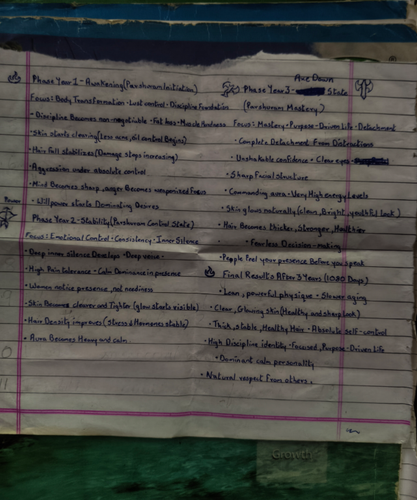 Phase Year 1 - Awakening (Parshuram Initiation)
Focus: Body Transformation · Lust control · Discipline Foundation
• Discipline Becomes non-negotiable · Fat loss · Muscle Hardness
• Skin starts clearing (less acne, oil control Begins)
• Hair Fall stabilizes (Damage stops increasing)
• Aggression under absolute control
• Mind Becomes sharp, anger Becomes weaponised Focus
• Willpower starts Dominating Desires
Power
Phase Year 2 - Stability (Parshuram Control State)
Focus: Emotional Control · Consistency · Inner Silence
• Deep inner silence Develops · Deep voice
• High Pain Tolerance · Calm Dominance in presence
• Women notice presence, not neediness
• Skin Becomes clearer and Tighter (glow starts visible)
• Hair Density improves (Stress & Hormones stable)
• Aura Becomes Heavy and calm
Axe Down
Phase Year 3 - State
(Parshuram Mastery)
Focus: Mastery · Purpose - Driven Life · Detachment
• Complete Detachment From Distractions
• Unshakable confidence · Clear eyes
• Sharp Facial structure
• Commanding aura · Very High energy Levels
• Skin glows naturally (Clean, Bright, youthful Look)
• Hair Becomes thicker, Stronger, Healthier
• Fearless Decision-making
• People Feel your presence Before you speak
Final Results After 3 Years (1080 Days)
• Lean, powerful physique · Slower aging
• Clear, Glowing skin (Healthy and sharp Look)
• Thick, stable, Healthy Hair · Absolute self-control
• High Discipline identity · Focused, Purpose-Driven Life
• Dominant calm personality
• Natural respect From others.
Growth